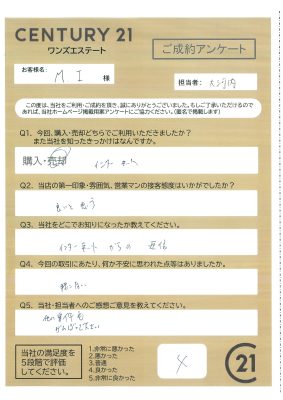 CENTURY 21
ワンズエステート
ご成約アンケート
お客様名:
M I 様
担当者: 大河内
この度は、当社をご利用・ご成約を頂き、誠にありがとうございました。もしご了承いただけるのであれば、当社ホームページ掲載用アンケートにご協力ください。(匿名で掲載します)
Q1. 今回、購入・売却どちらでご利用いただきましたか?
また当社を知ったきっかけはなんですか。
購入・売却 インターネット
Q2. 当店の第一印象・雰囲気、営業マンの接客態度はいかがでしたか?
良いと思う
Q3. 当社をどこでお知りになったか教えてください。
インターネットからの返信
Q4. 今回の取引にあたり、何か不安に思われた点等はありましたか。
特になし
Q5. 当社・担当者へのご感想ご意見を教えてください。
がんばって下さい
当社の満足度を
5段階で評価
してください。
1.非常に悪かった
2.悪かった
3.普通
4.良かった
5.非常に良かった
4
C21